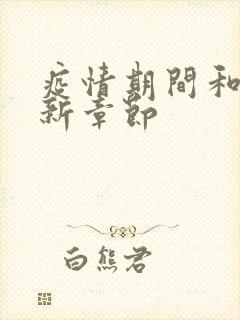 疫情期間和
新章節
白熊君